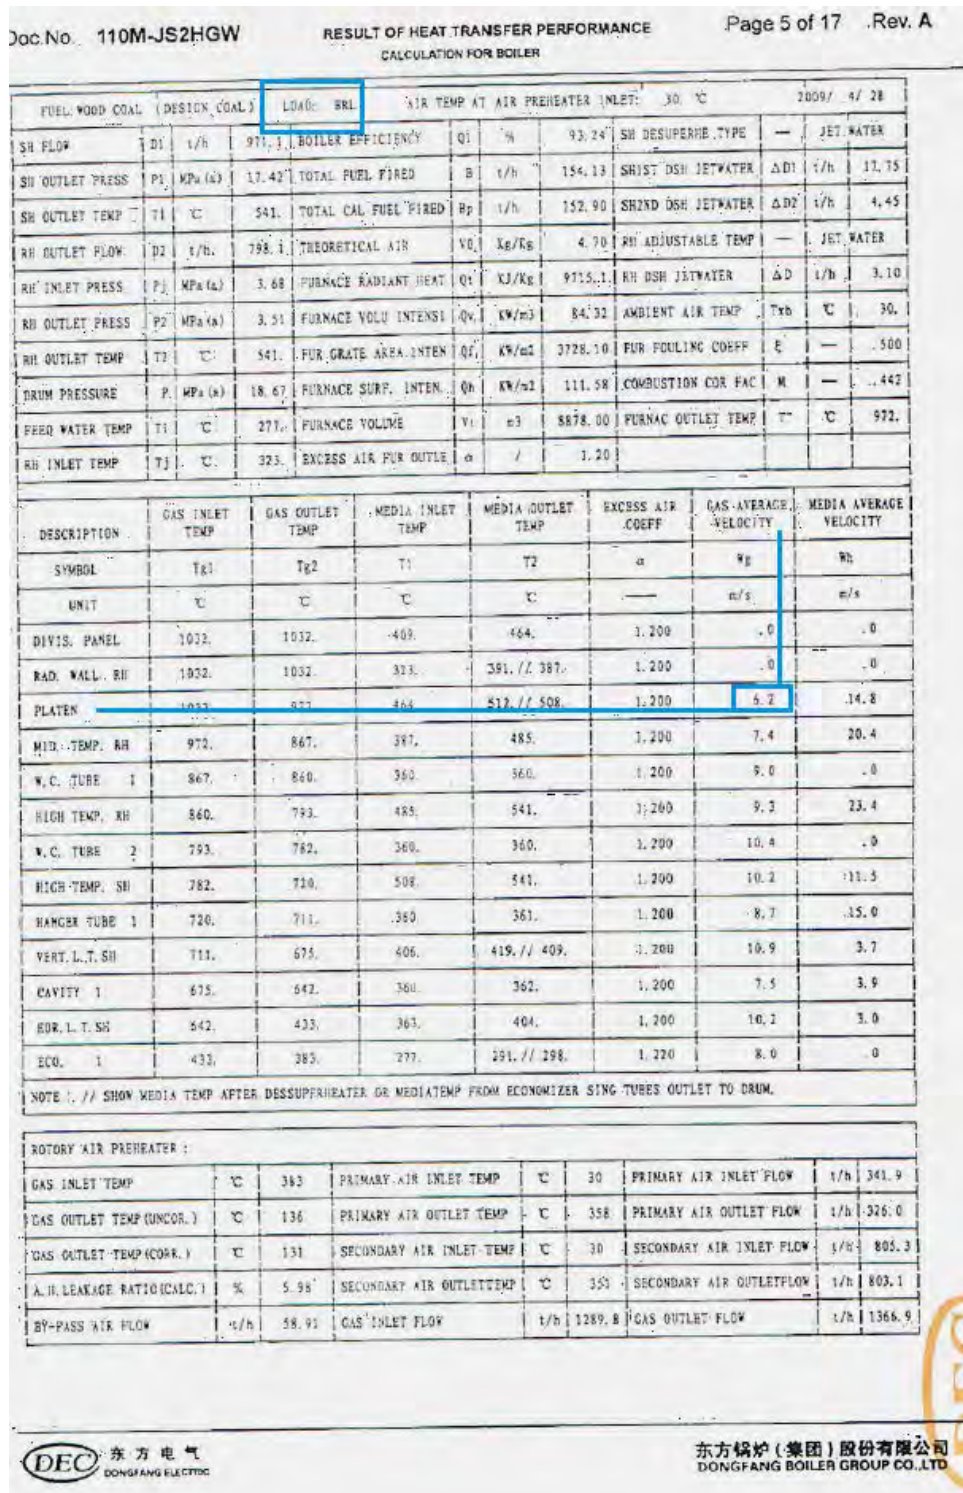 Doc.No. 110M-JS2HGW RESULT OF HEAT TRANSFER PERFORMANCE Page 5 of 17 .Rev. A
CALCULATION FOR BOILER
FUEL: WOOD COAL (DESIGN COAL) LOAD: BRL AIR TEMP AT AIR PREHEATER INLET: 30. ℃ 2009/ 4/ 28
SH FLOW D1 t/h 971.1 BOILER EFFICIENCY Qi % 93.24 SH DESUPERHE.TYPE — JET WATER
SH OUTLET PRESS P1 MPa(a) 17.42 TOTAL FUEL FIRED B t/h 154.13 SH1ST DSH JETWATER ΔD1 t/h 17.75
SH OUTLET TEMP T1 ℃ 541. TOTAL CAL FUEL FIRED Bp t/h 152.90 SH2ND DSH JETWATER ΔD2 t/h 4.45
RH OUTLET FLOW D2 t/h. 798.1 THEORETICAL AIR V0 Kg/Kg 4.70 RH ADJUSTABLE TEMP — JET WATER
RH INLET PRESS Pj MPa(a) 3.68 FURNACE RADIANT HEAT Qt KJ/Kg 9715.1 RH DSH JETWATER ΔD t/h 3.10
RH OUTLET PRESS P2 MPa(a) 3.51 FURNACE VOLU INTENSI Qv KW/m3 84.32 AMBIENT AIR TEMP Txb ℃ 30.
RH OUTLET TEMP T2 ℃ 541. FUR GRATE AREA INTEN Qf KW/m2 3728.10 FUR FOULING COEFF ξ — .500
DRUM PRESSURE P. MPa(a) 18.67 FURNACE SURF. INTEN. Qh KW/m2 111.58 COMBUSTION COR FAC M — .442
FEED WATER TEMP Ti ℃ 277. FURNACE VOLUME V m3 8878.00 FURNAC OUTLET TEMP T" ℃ 972.
RH INLET TEMP Tj ℃ 323. EXCESS AIR FUR OUTLE α / 1.20
DESCRIPTION GAS INLET TEMP GAS OUTLET TEMP MEDIA INLET TEMP MEDIA OUTLET TEMP EXCESS AIR COEFF GAS AVERAGE VELOCITY MEDIA AVERAGE VELOCITY
SYMBOL Tg1 Tg2 T1 T2 α Wg Wh
UNIT ℃ ℃ ℃ ℃ — m/s m/s
DIVIS. PANEL 1032. 1032. 409. 464. 1.200 .0 .0
RAD. WALL. RH 1032. 1032. 323. 391.// 387. 1.200 .0 .0
PLATEN 512.// 508. 1.200 6.2 14.8
MID. TEMP. RH 972. 867. 387. 485. 1.200 7.4 20.4
W.C. TUBE 1 867. 860. 360. 360. 1.200 9.0 .0
HIGH TEMP. RH 860. 793. 485. 541. 1.200 9.3 23.4
W.C. TUBE 2 793. 782. 360. 360. 1.200 10.4 .0
HIGH TEMP. SH 782. 720. 508. 541. 1.200 10.2 11.5
HANGER TUBE 1 720. 711. 360 361. 1.200 8.7 15.0
VERT. L.T. SH 711. 675. 406. 419.// 409. 1.200 10.9 3.7
CAVITY 1 675. 642. 360. 362. 1.200 7.5 3.9
HOR. L. T. SH 642. 433. 363. 404. 1.200 10.2 3.0
ECO. 1 433. 383. 277. 291.// 298. 1.220 8.0 .0
NOTE : // SHOW MEDIA TEMP AFTER DESSUPERHEATER OR MEDIATEMP FROM ECONOMIZER SING TUBES OUTLET TO DRUM.
ROTORY AIR PREHEATER :
GAS INLET TEMP ℃ 383 PRIMARY AIR INLET TEMP ℃ 30 PRIMARY AIR INLET FLOW t/h 341.9
GAS OUTLET TEMP(UNCOR.) ℃ 136 PRIMARY AIR OUTLET TEMP ℃ 358 PRIMARY AIR OUTLET FLOW t/h 326.0
GAS OUTLET TEMP(CORR.) ℃ 131 SECONDARY AIR INLET TEMP ℃ 30 SECONDARY AIR INLET FLOW t/h 805.3
A.H. LEAKAGE RATIO(CALC.) % 5.98 SECONDARY AIR OUTLETTEMP ℃ 351 SECONDARY AIR OUTLETFLOW t/h 803.1
BY-PASS AIR FLOW t/h 58.91 GAS INLET FLOW t/h 1289.8 GAS OUTLET FLOW t/h 1366.9
DEC 东方电气 东方锅炉(集团)股份有限公司
DONGFANG ELECTRIC DONGFANG BOILER GROUP CO.,LTD